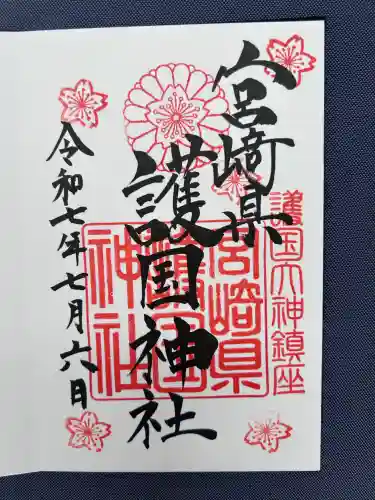 宮崎県
護国神社
令和七年七月六日
護国大神鎮座
宮崎県
護国
神社